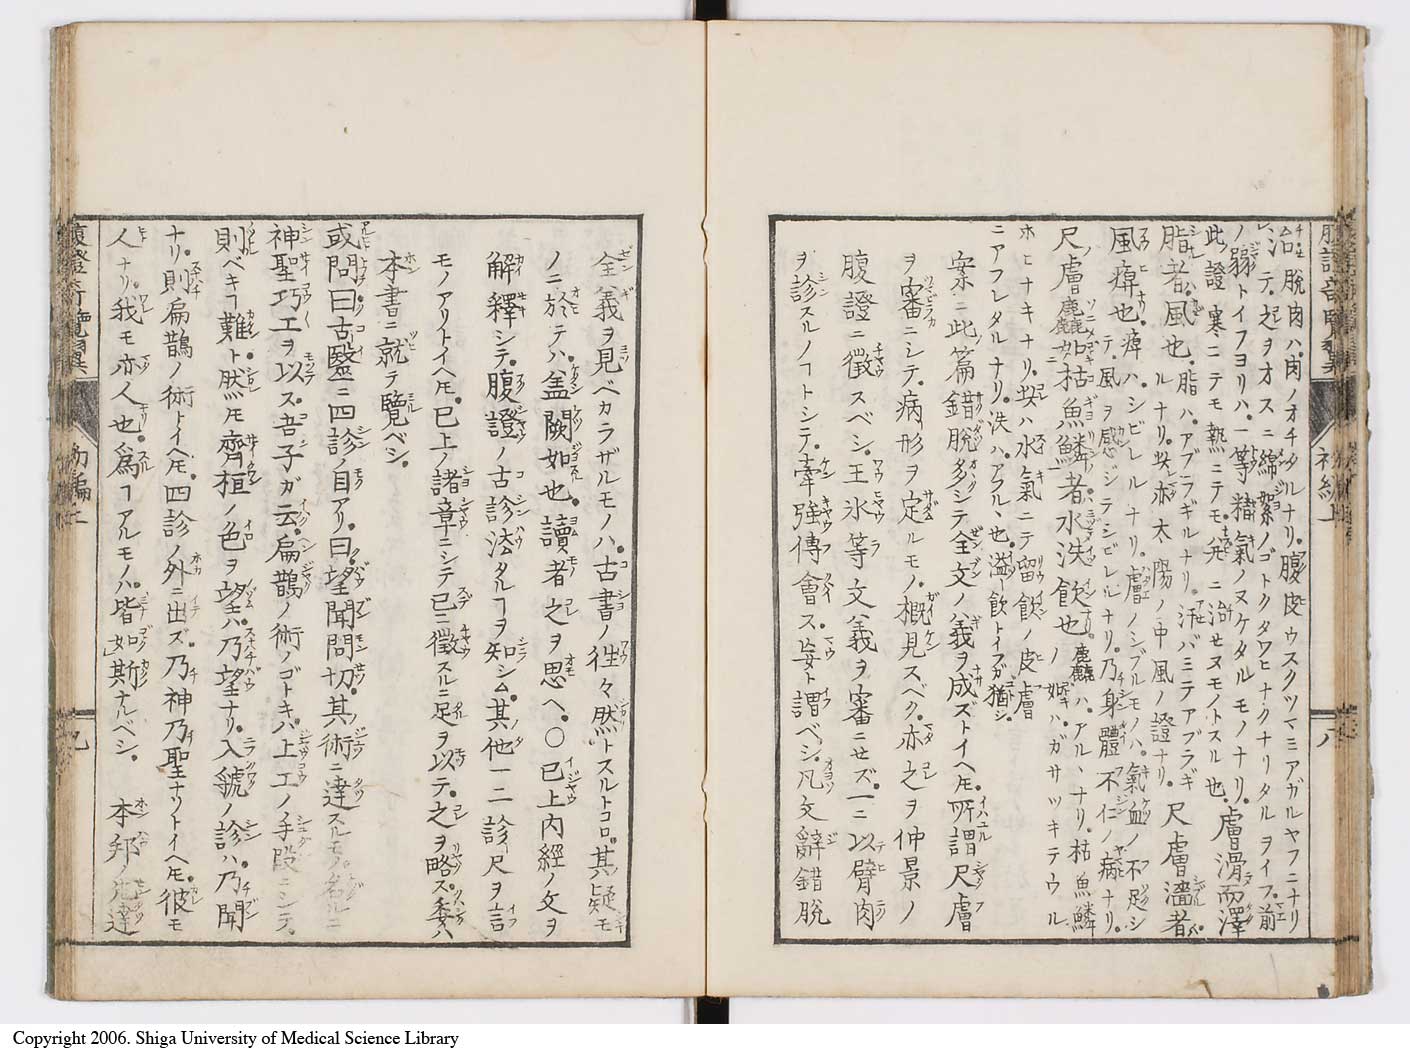 治脫肉ハ肉ノオチタルナリ。腹皮ウスクツマミアガルヤフニナリ
レ治テ之ヲオスニ綿絮ノゴトクタワヒナクナリタルヲイフ前
ノ弱トイフヨリハ一等精氣ノヌケタルモノナリ。膚滑而澤
此證寒ニテモ熱ニテモ発ニ治セヌモノトスル也
脂者風也。脂ハアブラギルナリ。滑バミテアブラギルナリ。此亦太陽ノ中風ノ證ナリ。尺膚濇者
風痺也。痺ハシビレルナリ。膚ノシブルモノハ氣血ノ不足シテ風ヲ感ジテシビレルナリ乃身體不仁ノ病ナリ。
尺膚麤如枯魚鱗者水泆飮也。麤ハアル、ナリ枯魚鱗ノ如ハガサツキテウルホヒナキナリ。此ハ水氣ニテ留飮ノ皮膚
ニアフレタルナリ。泆ハアフル、也。溢飮トイフガ猶シ
案ニ此篇錯脫多シテ全文ノ義ヲ成ズトイヘ𪜈。所謂尺膚
ヲ審ニシテ病形ヲ定ルモノ概見スベク亦之ヲ仲景ノ
腹證ニ徴スベシ。王氷等文義ヲ審ニセズ一ニ以臂肉
ヲ診スルノヿトシテ牽強傅會ス妄ト謂ベシ。凡文辭錯脫
全義ヲ見ベカラザルモノハ古書ノ徃々然トスルトコロ。其疑モ
ノニ於テハ盖闕如也。讀者之ヲ思ヘ。〇已上内經ノ文ヲ
解釋シテ腹證ノ古診法タルヿヲ知シム。其他一二診尺ヲ言
モノアリトイヘ𪜈。已上ノ諸章ニシテ已ニ徴スルニ足ヲ以テ之ヲ略ス委ハ
本書ニ就テ覽ベシ。
或問曰古醫ニ四診ノ目アリ。曰望聞問切。其術ニ達スルモノ名ルニ
神聖巧工ヲ以ス吾子ガ云扁鵲ノ術ノゴトキハ上工ノ手段ニシテ
則ベキヿ難ト然𪜈齊桓ノ色ヲ望ハ乃望ナリ。入虢ノ診ハ乃聞
ナリ。則扁鵲ノ術トイヘ𪜈。四診ノ外ニ出ズ。乃神乃聖ナリトイヘ𪜈。彼モ
人ナリ。我モ亦人也。爲ヿアルモノハ皆如斯ナルベシ。　本邦ノ先達